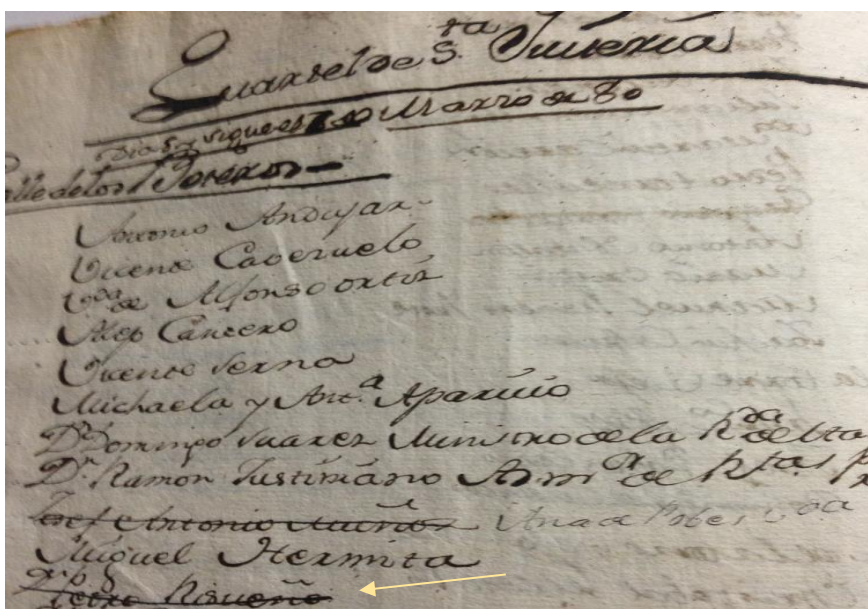 Quartel de S.ta Quiteria
Marzo de 80
Calle de los
Antonio Andujar
Vicente Cavezuelo
V.da de Alfonso ortiz
Alexo Cantero
Vicente Serna
Michaela y Ant.a Aparicio
D.n Domingo Suarez Ministro de la R.da de
D.n Ramon Justiniano Adm.or de R.tas
Josef Antonio Muñoz Ana de Robes V.da
Miguel Hermita
Pedro Risueño